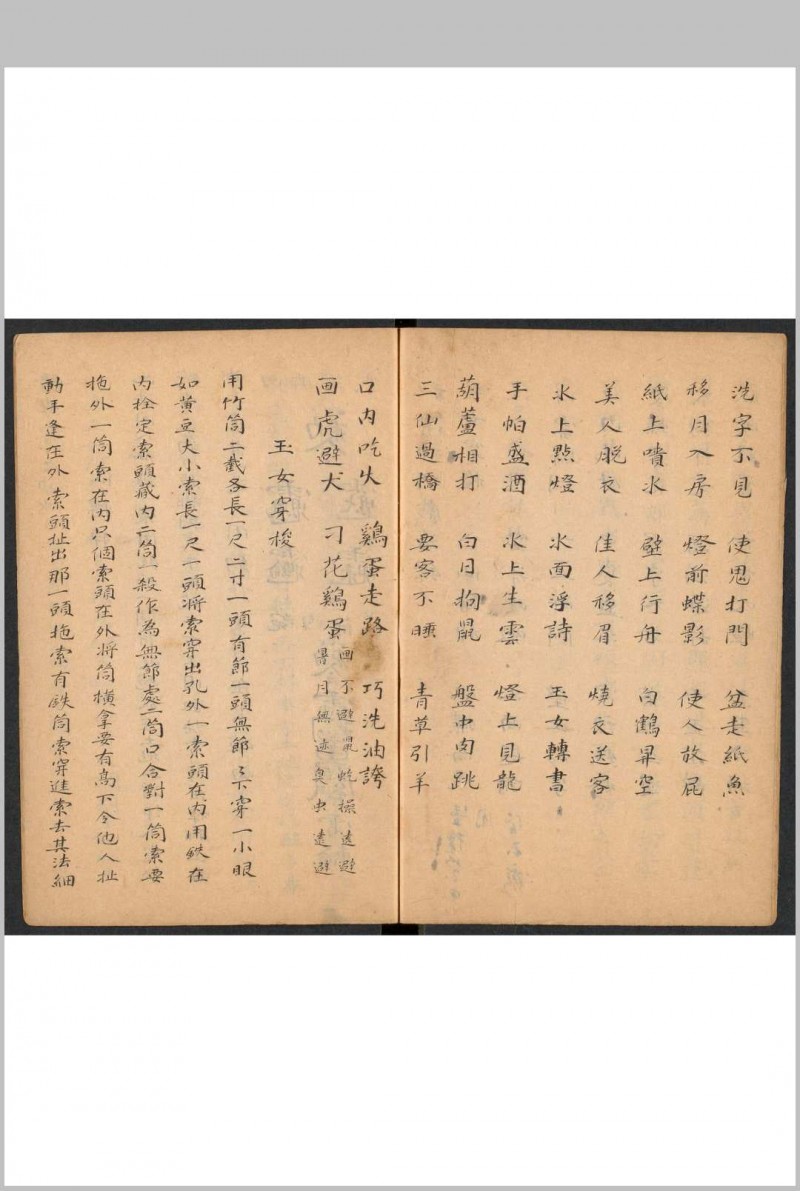 洗字不見 使鬼打門 盆走紙魚
移月入房 燈前蝶影 使人放屁
紙上噴水 壁上行舟 白鶴昇空
美人脫衣 佳人移眉 燒衣送客
水上點燈 水面浮詩 玉女轉書
手帕盛酒 水上生雲 燈上見龍
葫蘆相打 白日拘鼠 盤中肉跳
三仙過橋 要客不睡 青草引羊
口內吃火 鷄蛋走路 巧洗油誇
画虎避犬 刁花鷄蛋 画不避鼠蛇操遠避
月無迹臭虫遠避
玉女穿梭
用竹筒二截各長一尺二寸一頭有節一頭無節了下穿一小眼
如黃豆大小索長一尺一頭將索穿出孔外一索頭在內用鉄在
內拴定索頭藏內二筒一殺作為無節處二筒口合對一筒索要
拖外一筒索在內只個索頭在外將筒橫拿要有高下令他人扯
動手逢在外索頭扯出那一頭拖索有鉄筒索穿進索去其法細